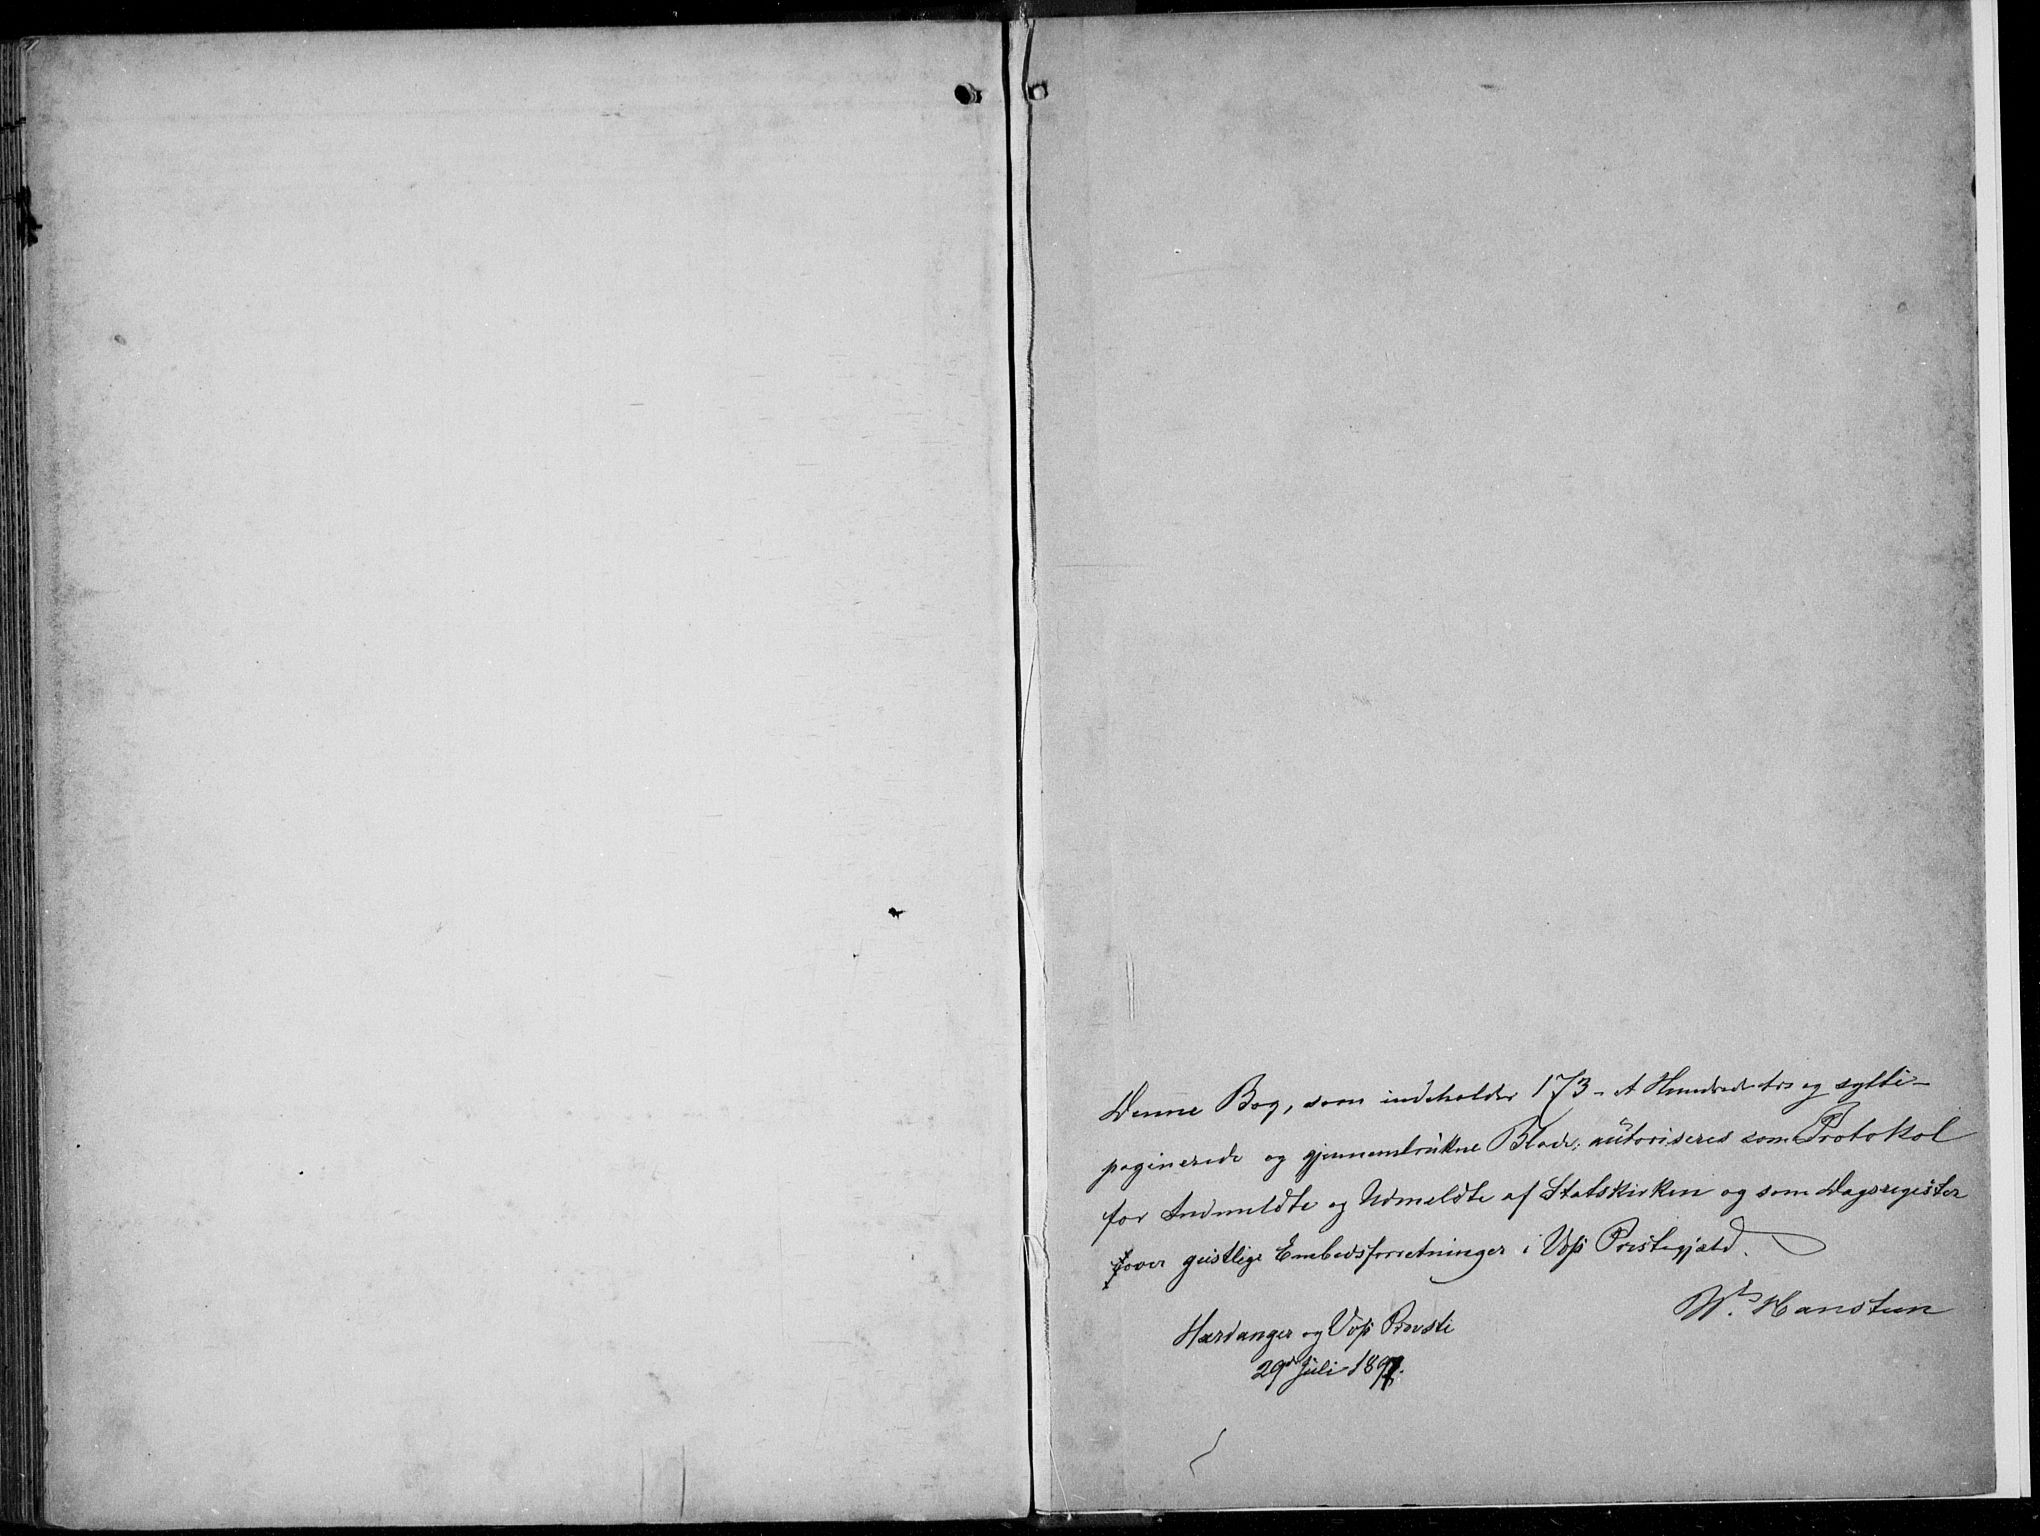 Denne Bog, som indeholder 173 - et Hundrede tre og sytti -
paginerede og gjennemtrukne Blade, autoriseres som Protokol
for Indmeldte og Udmeldte af Statskirken og som Dagsregister
over geistlige Embedsforretninger i Voss Prestegjæld.
Hardanger og Voss Provsti
29de Juli 189
Ws. Hansteen